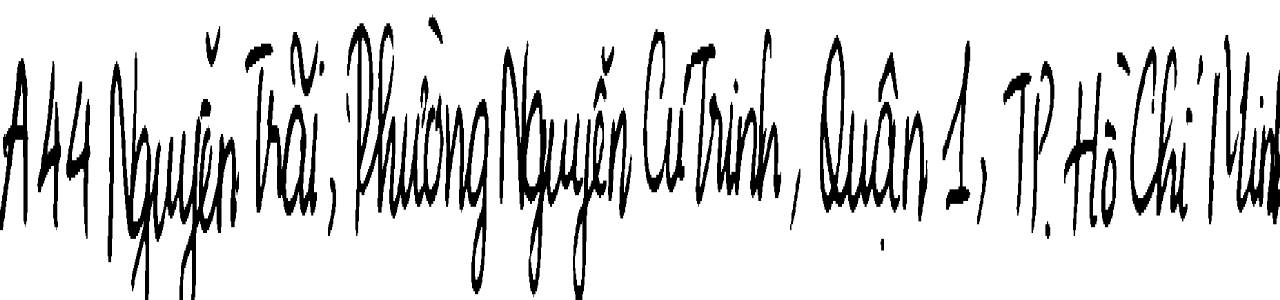 A44 Nguyễn Trãi, Phường Nguyễn Cư Trinh, Quận 1, TP. Hồ Chí Minh